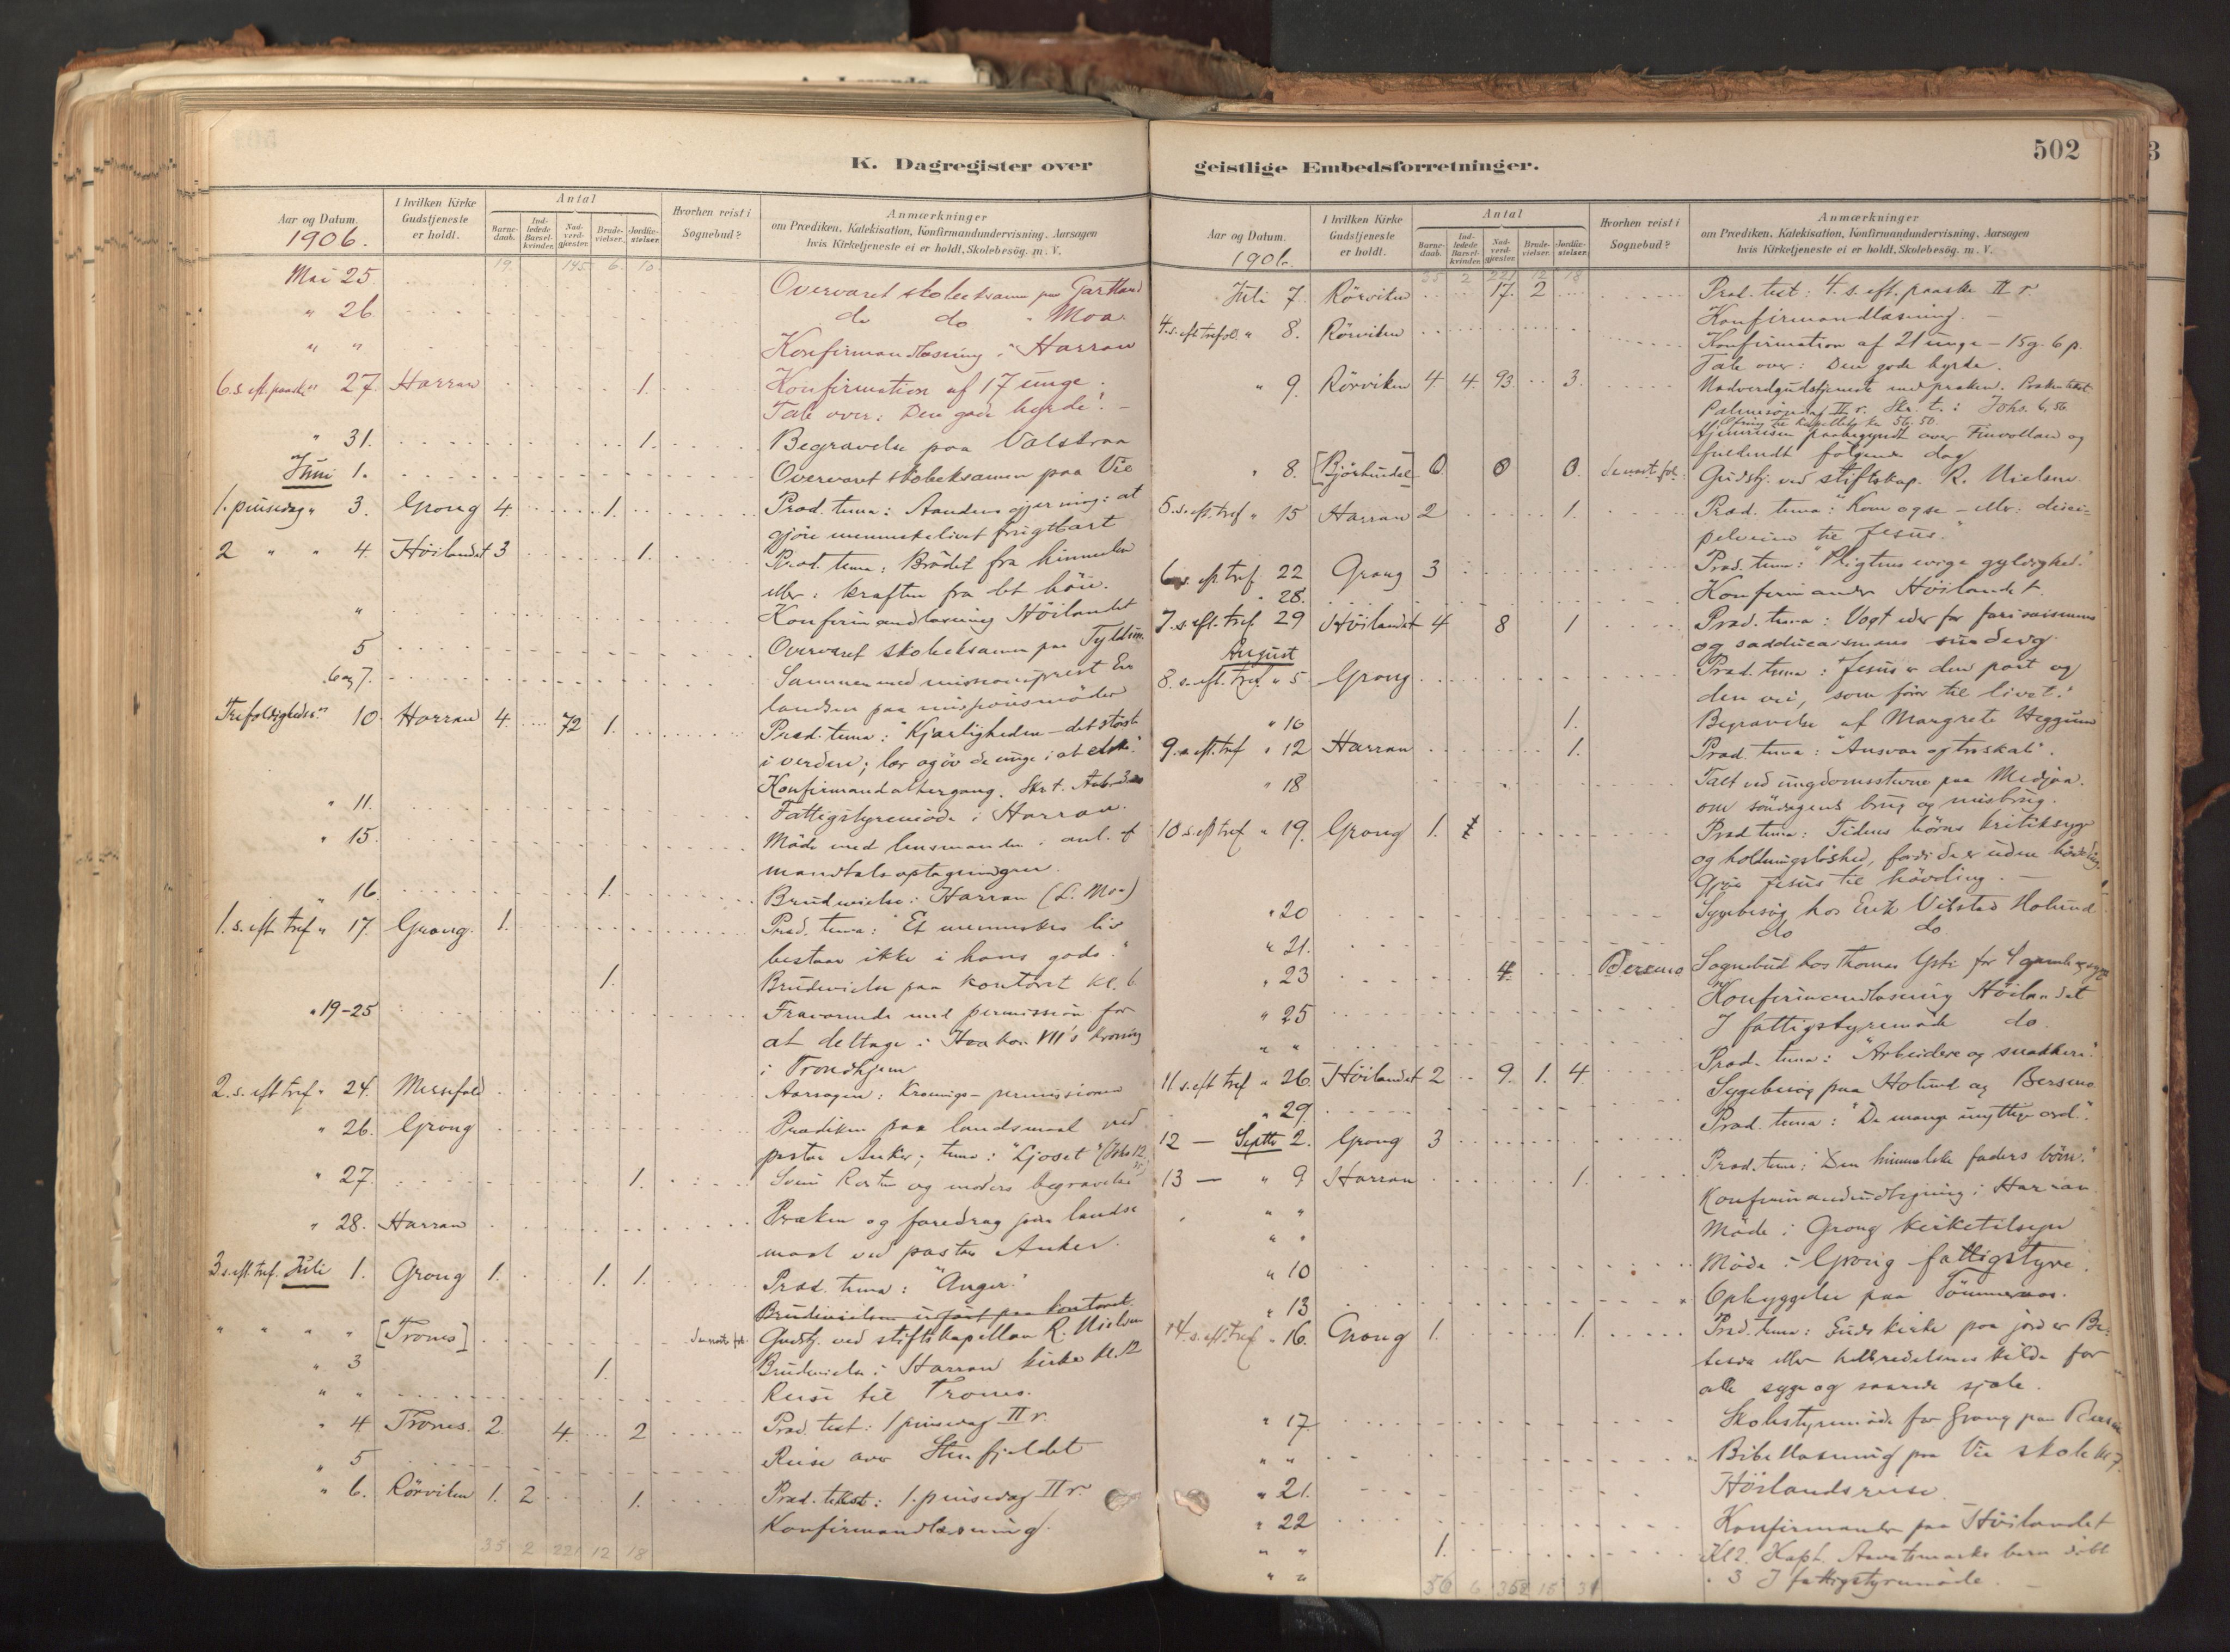 K. Dagregister over
Aar og Datum.
1906.
I hvilken Kirke Gudstjeneste er holdt.
Antal
Barnedaab.
Indledede Barselkvinder.
Nadverdgjæster.
Brudevielser.
Jordfæstelser.
Hvorhen reist i Sognebud?
Anmærkninger
om Prædiken, Katekisation, Konfirmandundervisning, Aarsagen
hvis Kirketjeneste ei er holdt, Skolebesög. m. V.
19. 145 6. 10.
Mai 25 Overvaret skoleeksamen paa Gartland
" 26 do do " Moa.
" " Konfirmandlæsning i Harran
6. s. eft. paaske " 27. Harran 1. Konfirmation af 17 unge.
Tale over: Den gode hyrde. –
" 31. 1. Begravelse paa Valstraa
Juni 1. Overvaret skoleeksamen paa Vie
1. pinsedag " 3. Grong 4. 1. Præd. tema: Aandens gjerning: at
gjöre menneskelivet frugtbart
2 " " 4. Höilandet 3 1. Præd. tema: Brödet fra himmelen
eller: kraften fra det höie.
" Konfirmandlæsning Höilandet
5 Overvaret skoleeksamen paa
6 og 7. Sammen med missionsprest
paa missionsmöder
Trefoldigheds " 10. Harran 4. 72 1. Præd. tema: "Kjærligheden – det störste
i verden; lær og öv de unge i at elske."
Konfirmandaltergang.
" 11. Fattigstyremöde i Harran.
" 15. Möde med lensmanden i anl. af
mandtalsoptagningen.
" 16. 1. Brudevielse i Harran (L. Moa)
1. s. eft. tref " 17. Grong. 1. Præd. tema: "Et menneskes liv
bestaar ikke i hans gods."
1. Brudevielse paa kontoret kl. 6
" 19-25 Fraværende med permission for
at deltage i Haakon VII's kroning
i Trondhjem
2. s. eft tref " 24. Aarsagen: Kronings-permissionen
" 26. Grong Prædiken paa landsmaal ved
pastor Anker; tema: "Ljoset"
" 27. 1. og moders begravelse
" 28. Harran Præken og foredrag paa lands
maal ved pastor Anker.
3 s. eft. tref. Juli 1. Grong 1. 1. 1. Præd. tema: "Anger."
Brudevielsen udfört paa kontoret.
" " " " [Trones] Gudstj. ved stiftskapellan R. Nielsen
" 3 1. Brudevielse i Harran kirke kl. 12
" " Reise til Trones.
" 4 Trones. 2. 4. 2 Præd. text: 1 pinsedag II r.
" 5 Reise over Stenfjeldet
" 6. Rörviken 1. 2 1. Præd. tekst: 1. pinsedag II r.
Konfirmandlæsning.
35 2 221 12 18
geistlige Embedsforretninger.
502
Aar og Datum.
1906.
I hvilken Kirke Gudstjeneste er holdt.
Antal
Barnedaab.
Indledede Barselkvinder.
Nadverdgjæster.
Brudevielser.
Jordfæstelser.
Hvorhen reist i Sognebud?
Anmærkninger
om Prædiken, Katekisation, Konfirmandundervisning, Aarsagen
hvis Kirketjeneste ei er holdt, Skolebesög. m. V.
35 2 221 12 18
Juli 7. Rörviken 17. 2 Præd. text: 4. s. eft. paaske II r
Konfirmandlæsning. –
4. s. eft trefold. " 8. Rörviken Konfirmation af 21 unge – 15 g. 6 p.
Tale over: Den gode hyrde.
" 9. Rörviken 4 4. 93. 3. Nadverdgudstjeneste med præken.
Palmesöndag II r. Skr. t.: Johs. 6, 56.
Hjemreisen paabegyndt over Finvollan og
fuldendt fölgende dag
" 8. [Björhusdal] 0 0 0. Gudstj. ved stiftskap. R. Nielsen.
5. s. eft. tref " 15 Harran 2 1. Præd. tema: "Kom og se – eller: disci=
pelveien til Jesus."
6. s. eft. tref. 22 Grong 3 Præd. tema: "Pligtens evige gyldighed."
" 28. Konfirmander Höilandet.
7. s. eft. tref. 29 Höilandet 4 8 1 Præd. tema: Vogt eder for farisæismens
og sadducæismens surdeig
August
8. s. eft. tref. " 5 Grong Præd. tema: "Jesus er den port og
den vei, som förer til livet."
" 10 1. Begravelse af Margrete Heggum
9. s. eft. tref " 12 Harran 1. Præd. tema: "Ansvar og troskab".
" 18 Talt ved ungdomsstevne paa Medjaa.
om söndagens brug og misbrug.
10. s. eft tref " 19. Grong 1. Præd. tema: Tidens börns kritiksyge
og holdningslöshed, fordi de er uden hövding.
Gjör Jesus til hövding. –
" 20 Sygebesög hos Erik Vibstad Holund
" 21. do do
" 23 4. Bersmo Sognebud hos Thomas for 4 gamle og syge
" 25 Konfirmandlæsning Höilandet
" " I fattigstyremöde do.
11. s. eft tref " 26. Höilandet 2 9. 1. 4. Præd. tema: "Arbeidere og snakkere."
" 29. Sygebesög paa Holund og Bersmo
12 – Septb 2. Grong 3 Præd. tema: "De mange unyttige ord."
13 – " 9 Harran 1. Præd. tema: "Den himmelske faders börn."
" " Konfirmandudspörging i Harran
" " Möde i Grong kirketilsyn
" 10 Möde i Grong fattigstyre.
" 13 Opbyggelse paa Tömmeraas.
14. s. eft. tref " 16. Grong 1. 1. Præd. tema: Guds kirke paa jord er Be=
tesda eller helbredelsens kilde for
alle syge og saarede sjæle.
" 17 Skolestyremöde for Grong paa
" " Bibellæsning paa Vie skole kl 7.
" 21. Höilandsreise.
" 22 Konfirmander paa Höilandet
" " 1. Kl 2. Kapt. Aavatsmarks barn döbt
" " " 3 I fattigstyremöde. –
56 6 352 15 31